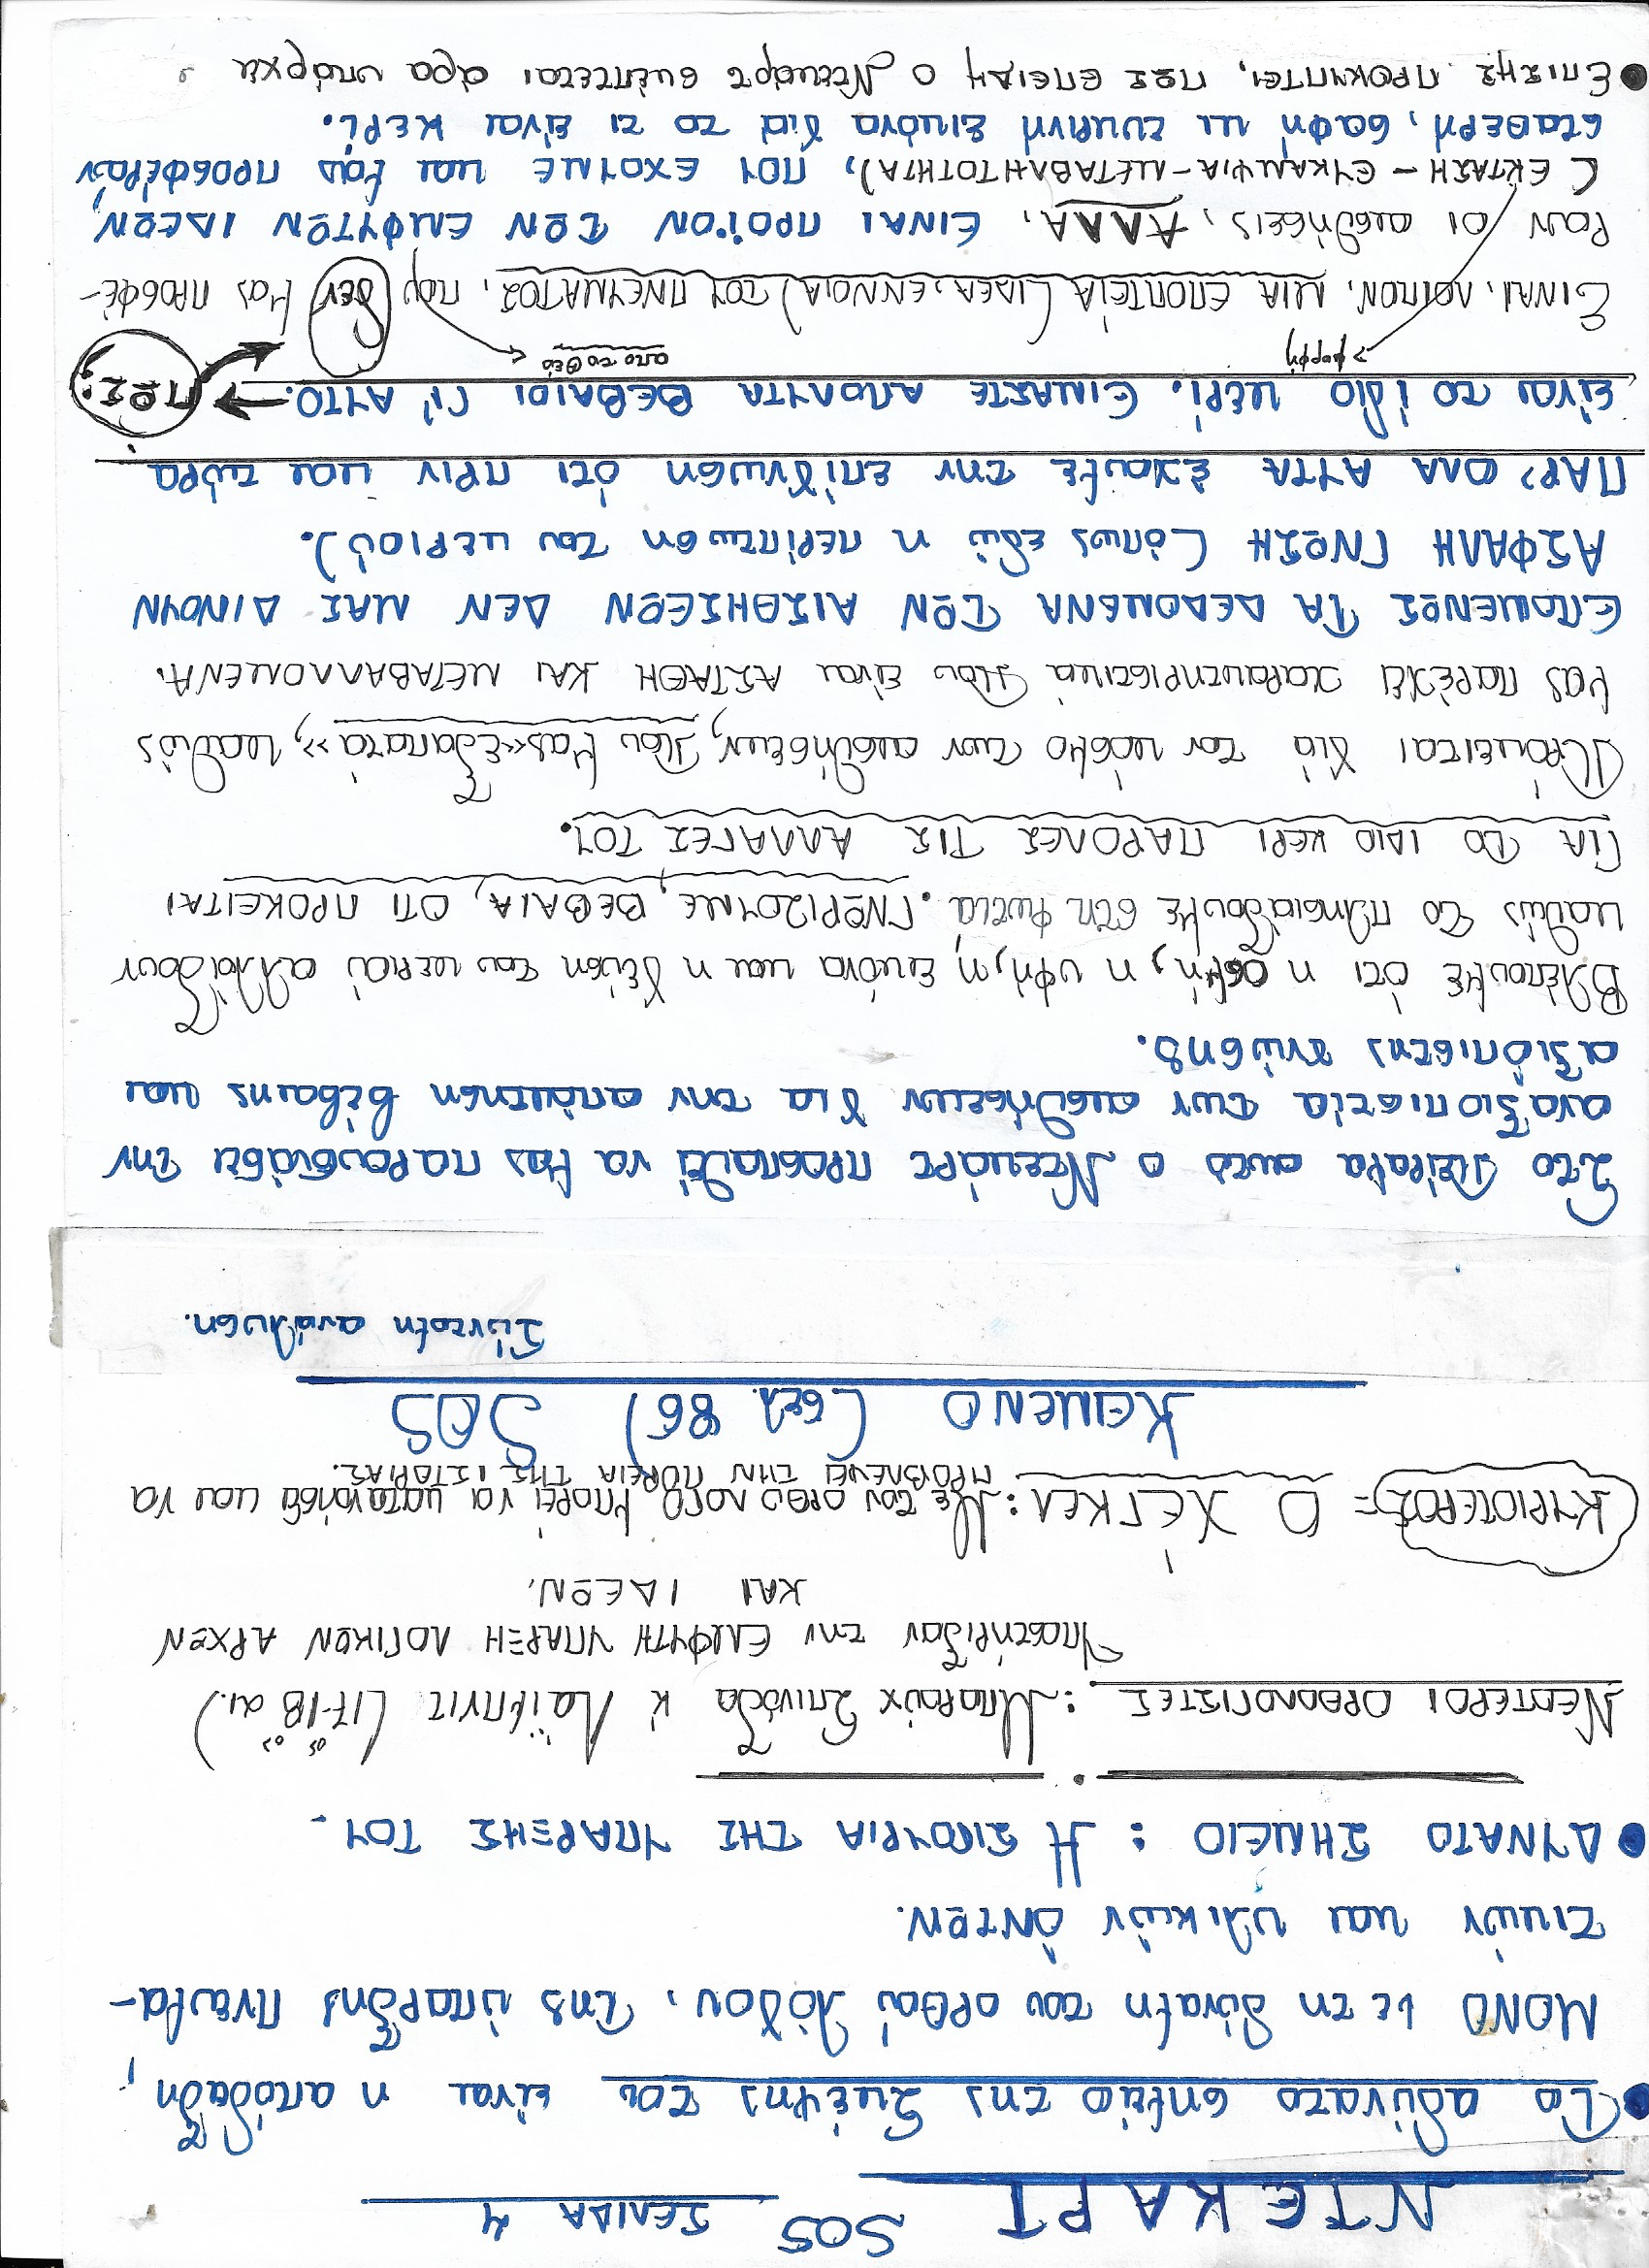 ΝΤΕΚΑΡΤ SOS ΣΕΛΙΔΑ 4
• Το αδύνατο σημείο της σκέψης του είναι η απόδειξη,
ΜΟΝΟ με τη δύναμη του ορθού λόγου, της ύπαρξης πνευμα-
τικών και υλικών όντων.
• ΔΥΝΑΤΟ ΣΗΜΕΙΟ : Η ΣΙΓΟΥΡΙΑ ΤΗΣ ΥΠΑΡΞΗΣ ΤΟΥ.
ΝΕΩΤΕΡΟΙ ΟΡΘΟΛΟΓΙΣΤΕΣ : Μπαρούχ Σπινόζα κ΄ Λάιμπνιτζ (17ος-18ος αι.)
Υποστήριξαν την ΕΜΦΥΤΗ ΥΠΑΡΞΗ ΛΟΓΙΚΩΝ ΑΡΧΩΝ
ΚΑΙ ΙΔΕΩΝ.
ΚΥΡΙΟΤΕΡΟΣ = Ο ΧΕΓΚΕΛ : Με τον ορθό λόγο μπορεί να κατανοήσει και να
ΠΡΟΒΛΕΨΕΙ ΤΗΝ ΠΟΡΕΙΑ ΤΗΣ ΙΣΤΟΡΙΑΣ.
ΚΕΙΜΕΝΟ (σελ. 86) SOS
Σύντομη ανάλυση.
Στο πείραμα αυτό ο Ντεκάρτ προσπαθεί να μας παρουσιάσει την
αναξιοπιστία των αισθήσεων για την απόκτηση βέβαιης και
αξιόπιστης γνώσης.
Βλέπουμε ότι η οσμή, η υφή, η εικόνα και η γεύση του κεριού αλλάζουν
καθώς το πλησιάζουμε στη φωτιά. ΓΝΩΡΙΖΟΥΜΕ, ΒΕΒΑΙΑ, ΟΤΙ ΠΡΟΚΕΙΤΑΙ
ΓΙΑ ΤΟ ΙΔΙΟ ΚΕΡΙ ΠΑΡΟΛΕΣ ΤΙΣ ΑΛΛΑΓΕΣ ΤΟΥ.
Πρόκειται για τον κόσμο των αισθήσεων, που μας «εξαπατά», καθώς
μας παρέχει χαρακτηριστικά που είναι ΑΣΤΑΘΗ ΚΑΙ ΜΕΤΑΒΑΛΛΟΜΕΝΑ.
ΕΠΟΜΕΝΩΣ ΤΑ ΔΕΔΟΜΕΝΑ ΤΩΝ ΑΙΣΘΗΣΕΩΝ ΔΕΝ ΜΑΣ ΔΙΝΟΥΝ
ΑΣΦΑΛΗ ΓΝΩΣΗ (όπως εδώ η περίπτωση του κεριού).
ΠΑΡ' ΟΛΑ ΑΥΤΑ έχουμε την επίγνωση ότι πριν και τώρα
είναι το ίδιο κερί. ΕΙΜΑΣΤΕ ΑΠΟΛΥΤΑ ΒΕΒΑΙΟΙ ΓΙ' ΑΥΤΟ. ΠΩΣ;
> μορφή από το Θεό
Είναι, λοιπόν, ΜΙΑ ΕΠΟΠΤΕΙΑ (ΙΔΕΑ, ΕΝΝΟΙΑ) ΤΟΥ ΠΝΕΥΜΑΤΟΣ, που δεν μας προσφέ-
ρουν οι αισθήσεις, ΑΛΛΑ, ΕΙΝΑΙ ΠΡΟΪΟΝ ΤΩΝ ΕΜΦΥΤΩΝ ΙΔΕΩΝ,
(ΕΚΤΑΣΗ - ΕΥΚΑΜΨΙΑ - ΜΕΤΑΒΛΗΤΟΤΗΤΑ), ΠΟΥ ΕΧΟΥΜΕ και μας ΠΡΟΣΦΕΡΟΥΝ
σταθερή, σαφή κι ειλικρινή εικόνα για το τι είναι ΚΕΡΙ.
• ΕΠΙΣΗΣ ΠΡΟΚΥΠΤΕΙ, ΠΩΣ ΕΠΕΙΔΗ ο Ντεκάρτ σκέπτεται άρα υπάρχει